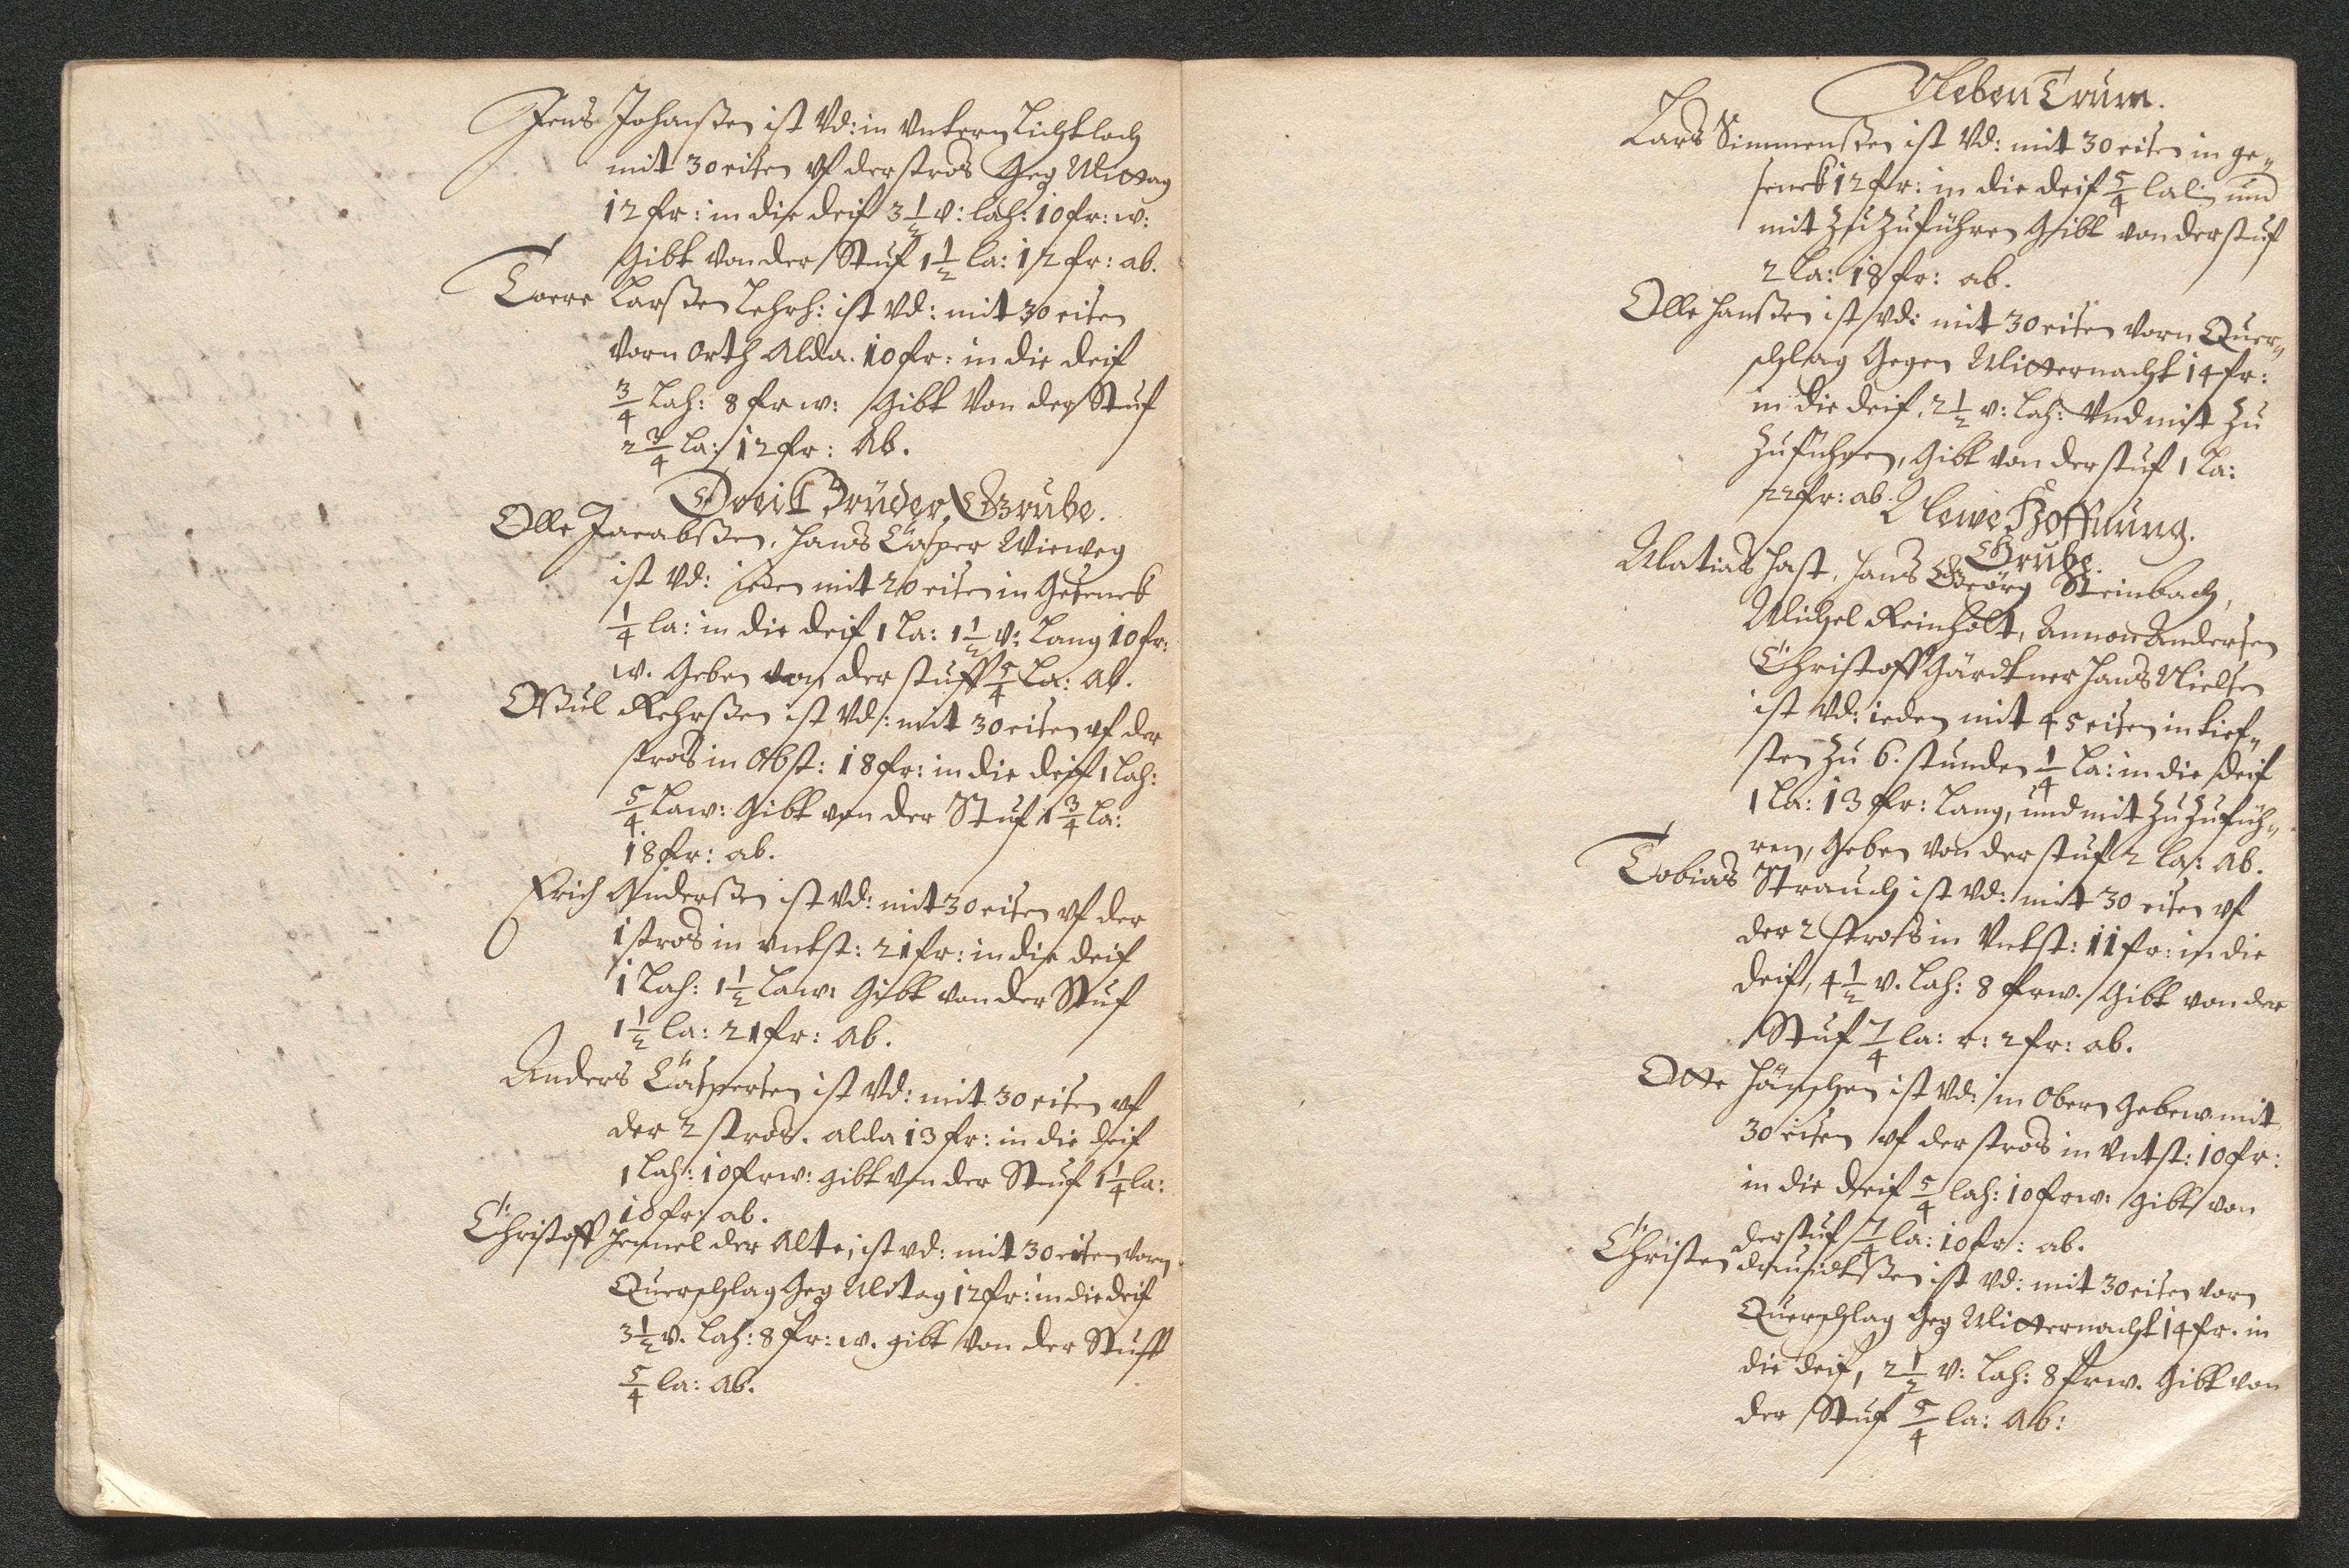 Jens Johanßen ist Vd: in Vntern Lichtloch
mit 30 eisen vf der stros Geg Mittag
12 fr: in die deif 3 1/2 v: lah: 10 fr: w:
Gibt von der Stuf 1 1/2 la: 12 fr: ab.
Toere Larßen Lehrh: ist Vd: mit 30 eisen
Vorn Orth Alda. 10 fr: in die deif
3/4 Lah: 8 fr w: Gibt Von der Stuf
2 3/4 la: 12 fr: Ab.
Brüder Grube.
Olle Jacobßen, Hans Casper Wieweg
ist Vd: ieden mit 20 eisen in Gesenck
1/4 la: in die deif 1 La: 1 1/2 v: Lang 10 fr:
w. Geben von der stuff 5/4 La: Ab.
Oßul Rehrßen ist Vd: mit 30 eisen vf der
stros in Obst: 18 fr: in die deif 1 Lah:
5/4 Law: Gibt von der Stuf 1 3/4 La:
18 fr: ab.
Erich Anderßen ist Vd: mit 30 eisen vf der
1 stros in vntst: 21 fr: in die deif
1 Lah: 1 1/2 Law: Gibt von der Stuf
1 1/2 la: 21 fr: Ab.
Anders Caspersen ist Vd: mit 30 eisen vf
der 2 stros. alda 13 fr: in die deif
1 Lah: 10 fr w: gibt von der Stuf 1 1/4 la:
10 fr: ab.
Christoff Hemel der Alte, ist vd: mit 30 eisen vorn
Querschlag Geg Mitag 12 fr: in die deif
3 1/2 v. Lah: 8 fr: w. gibt von der Stuff
5/4 la: Ab.
Neben Trum.
Lars Simmenßen ist Vd: mit 30 eisen in ge„
senck 12 fr: in die deif 5/4 lal: und
mit Zu Zuführen Gibt von der stuf
2 La: 18 fr: ab.
Olle Hanßen ist vd: mit 30 eisen Vorn Quer„
schlag Gegen Mitternacht 14 fr:
in die deif. 2 1/2 v: Lah: Vnd mit Zu
Zuführen, Gibt von der stuf 1 La:
22 fr: ab.
Newe Hoffnung.
Grube.
Matias Hast, Hans Georg Steinbach,
Michel Reinholt, Andersen
Christoff Gärdtner Hans Nielsen
ist Vd: ieden mit 45 eisen in tief„
sten Zu 6. stunden 1/4 La: in die deif
1 La: 13 fr: Lang, und mit Zu Zufüh„
ren, Geben von der stuf 2 la: Ab.
Tobias Strauch ist Vd: mit 30 eisen vf
der 2 stros in Vntst: 11 fr: in die
deif, 4 1/2 v. Lah: 8 fr w. Gibt von der
Stuf 7/4 la: r: 2 fr: ab.
Otte Hänschen ist Vd: in Obern Gebew mit
30 eisen vf der stros in Vntst: 10 fr:
in die deif 5/4 lah: 10 fr w: gibt von
der stuf 7/4 la: 10 fr: ab.
Christen ist Vd: mit 30 eisen vorn
Querschlag Geg Mitternacht 14 fr. in
die deif, 2 1/2 v: Lah: 8 fr w. Gibt von
der Stuf 5/4 la: Ab: